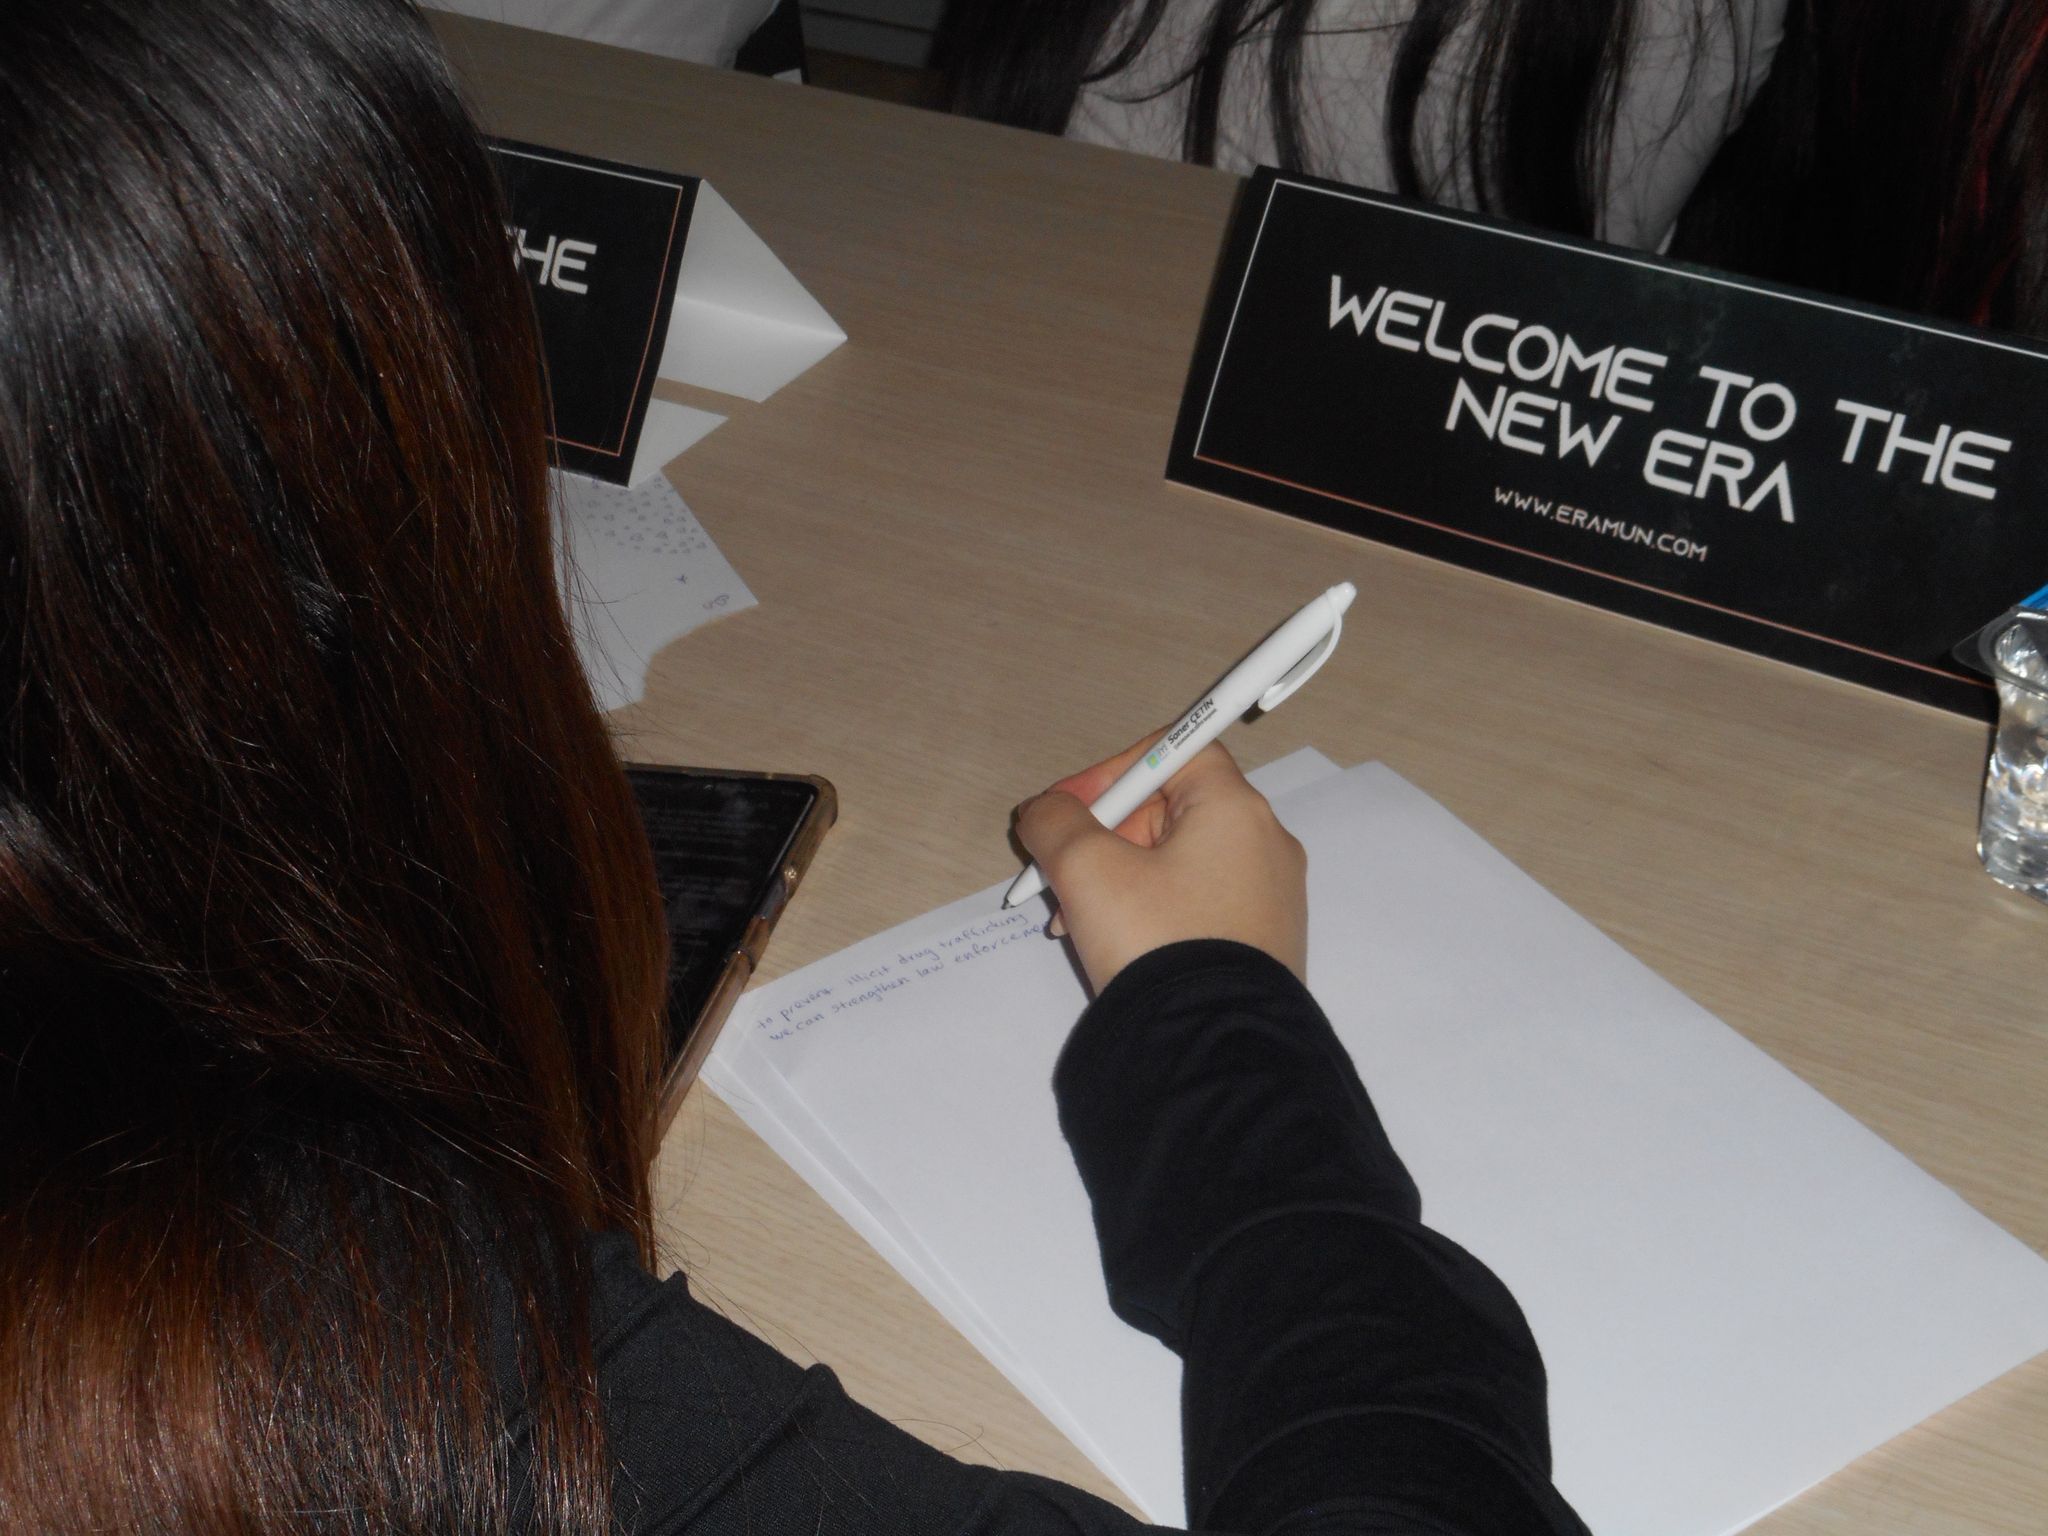 THE
WELCOME TO THE
NEW ERA
WWW.ERAMUN.COM
Soner ÇETİN
to prevent illicit drug trafficking
we can strengthen law enforcemen